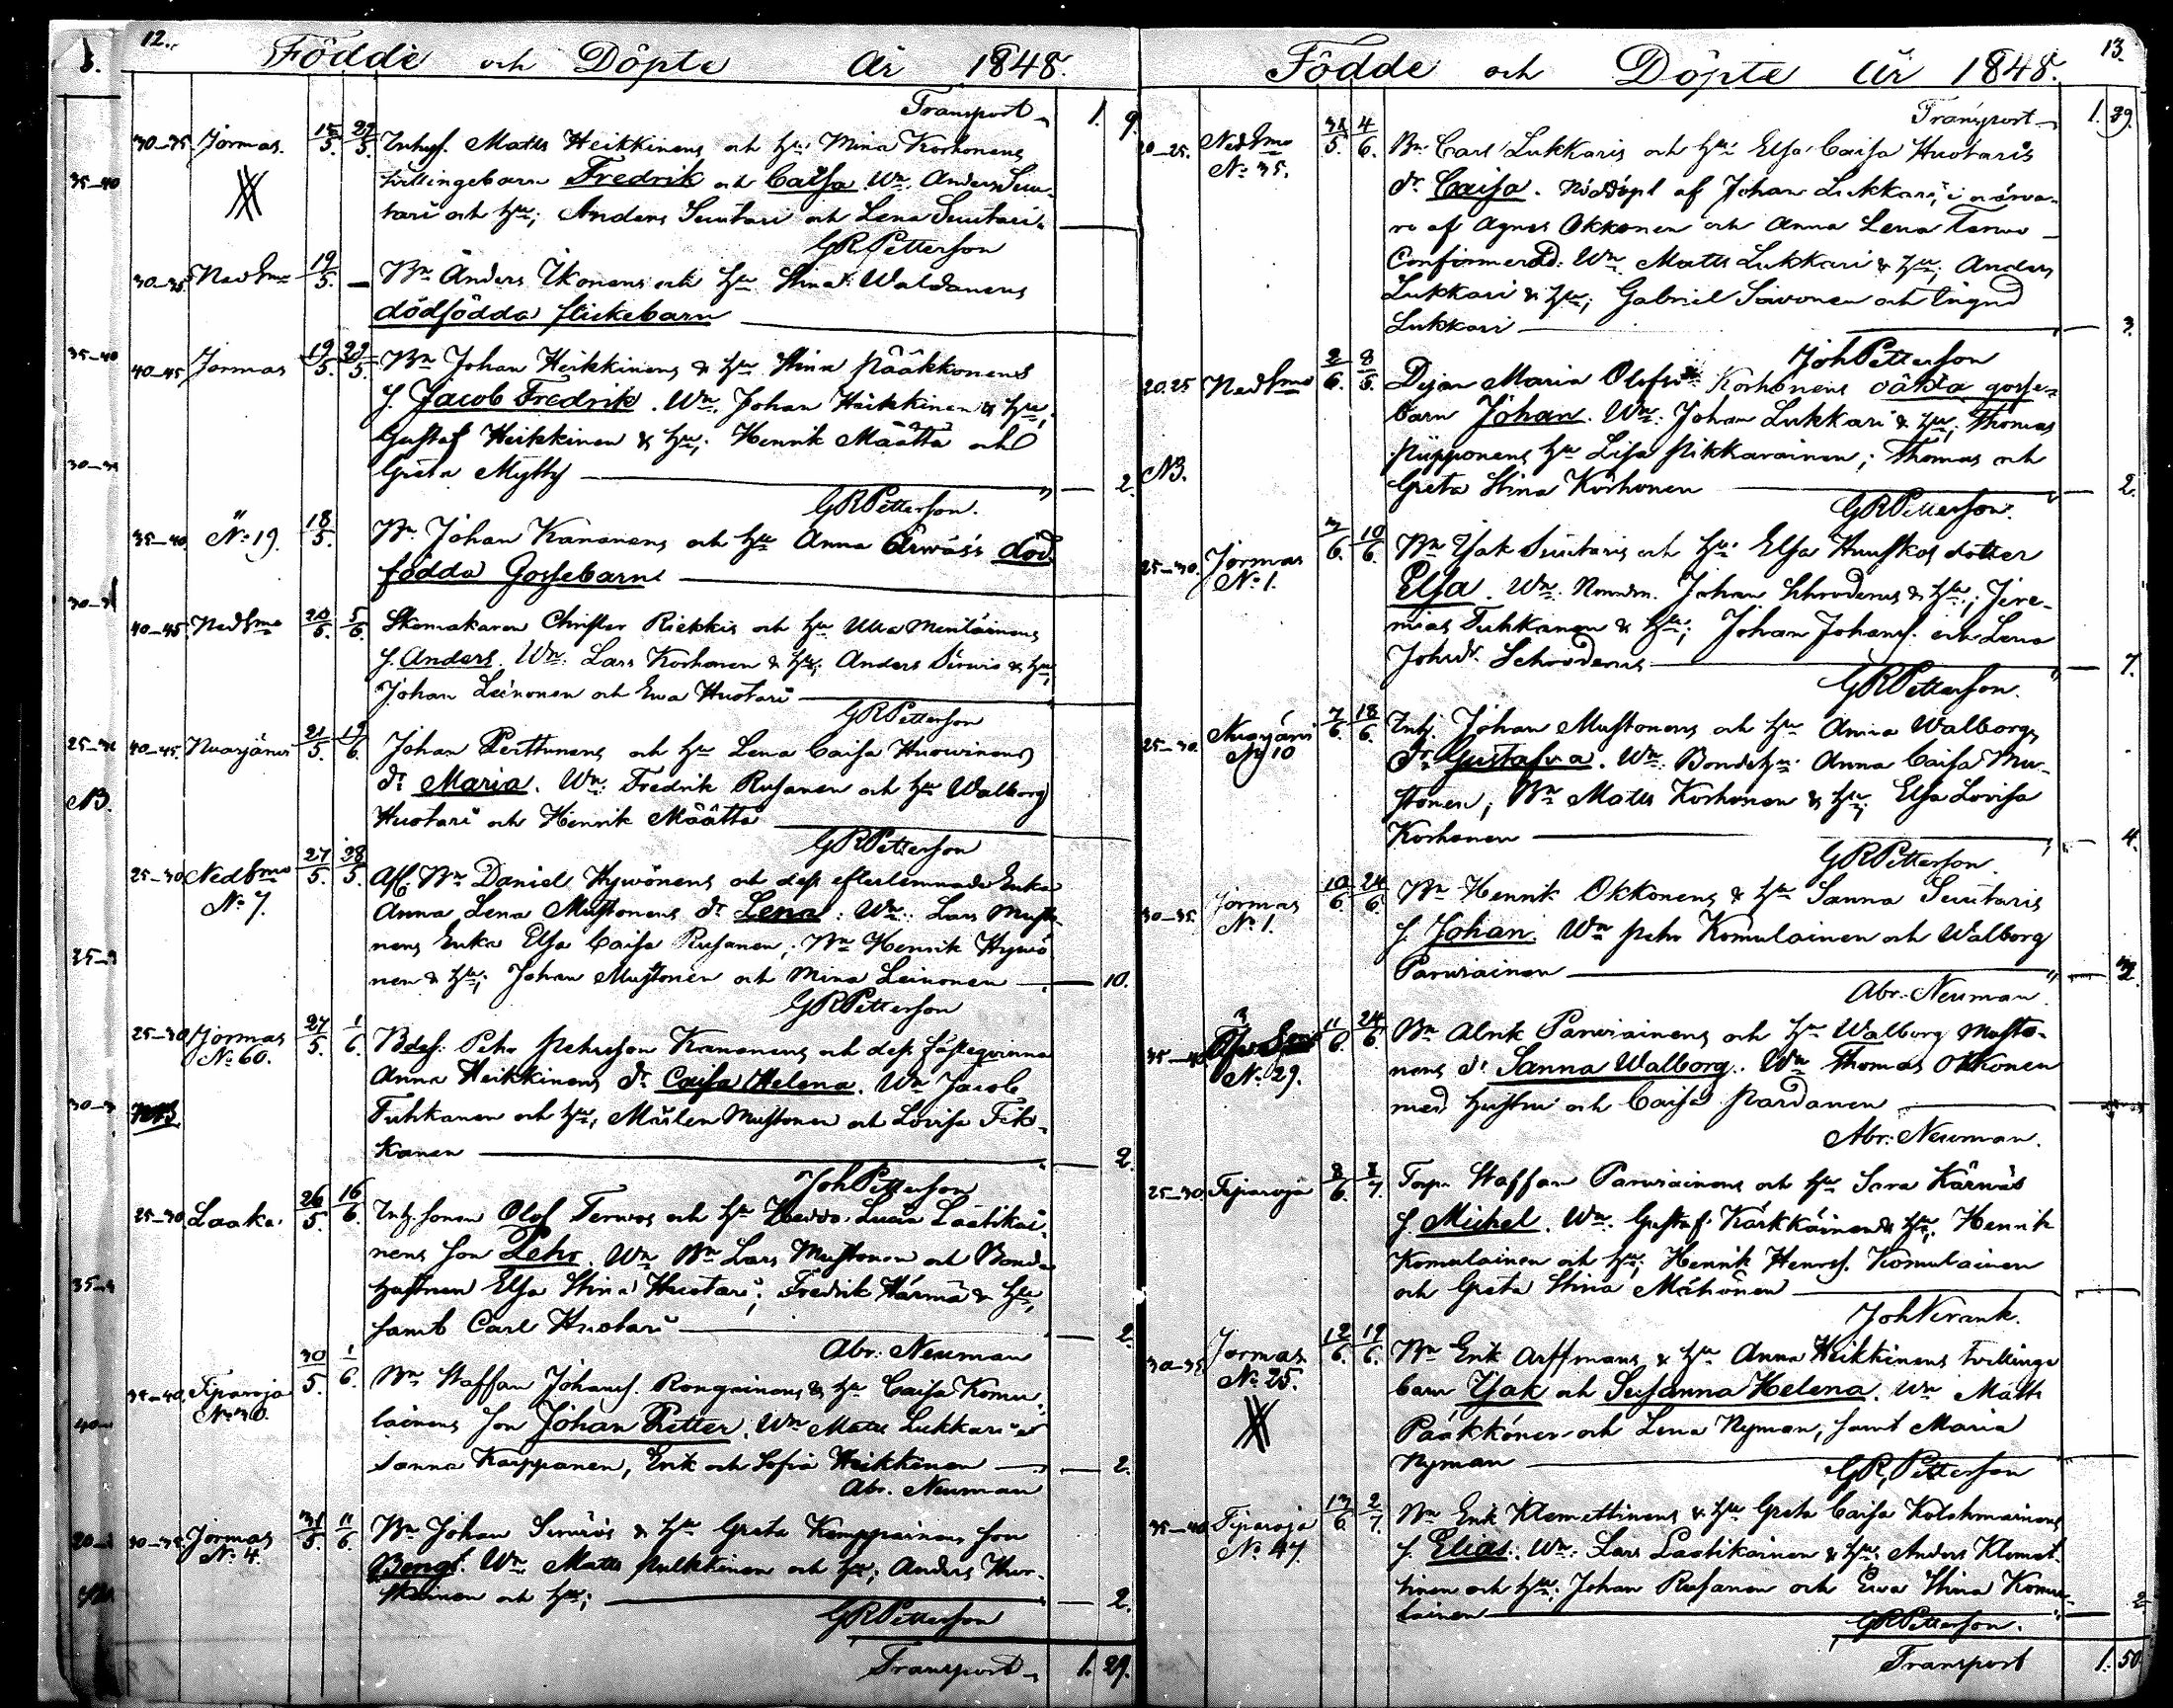 12.
Födde och Döpte År 1848.
Transport 1. 9.
30-35 Jormas. 15/5. 29/5. Inhys. Matts Heikkinens och Hu: Mina Korhonens
tvillingebarn Fredrik och Caisa. Wn. Anders Seu-
tari och Hu; Anders Seutari och Lena Seutari.
GRPetterson
30-35 Nedsmo 19/5. — Bn Anders Ikonens och Hu Stina Waldanens
dödfödda flickebarn
40-45 Jormas 19/5. 29/5. Bn Johan Heikkinens & Hu Stina Pääkkonens
s. Jacob Fredrik. Wn. Johan Heikkinen & Hu;
Gustaf Heikkinen & Hu; Henrik Määttä och
Greta Mylly 2.
GRPetterson.
35-40 " No 19. 18/5. Bn Johan Kananens och Hu AnnaÄrwäs's död
födda Gossebarn
40-45 Nedsmo 20/5. 5/6. Skomakaren Christer Riekkis och Hu Ulla Mentäinens
s. Anders. Wn: Lars Korhonen & Hu; Anders Serwio & Hu;
Johan Leinonen och Ewa Huotari
GRPetterson
40-45 Nuasjärwi 21/5. 19/6. Johan Perttunens och Hu Lena Caisa Huowinens
dr Maria. Wn: Fredrik Rusanen och Hu Walborg
Huotari och Henrik Määttä
GRPetterson
25-30 Nedsmo No 7. 27/5. 28/5. Afl. Bn Daniel Hywönens och dess efterlemnade Enka
Anna Lena Mustonens dr Lena. Wn: Lars Musto
nens Enka Elsa Caisa Rusanen; Bn Henrik Hywö
nen & Hu; Johan Mustonen och Mina Leinonen 10.
GRPetterson
25-30 Jormas No 60. 27/5. 1/6. Bdes: Pehr Pehrsson Kananens och dess fästeqvinna
Anna Heikkinens dr Caisa Helena. Wn Jacob
Tuhkanen och Hu; Mårten Mustonen och Lovisa Tuh-
kanen 2.
JohPetterson
25-30 Laaka. 26/5. 16/6. Inh. sonen Olof Terwos och Hu Hedda Luisa Läätikäi-
nens son Pehr. Wn Bn Lars Mustonen och Bonde
hustrun Elsa Stina Huotari; Fredrik Härmä & Hu;
samt Carl Huotari 2.
Abr. Neuman
35-40 Tiparoja No 30. 30/5. 1/6. Bn Staffan Johans. Rongainens & Hu Caisa Komu-
lainens son Johan Petter. Wn Matts Lukkari och
Sanna Karppanen, Erik och Sofia Heikkinen 2.
Abr. Neuman
30-35 Jormas No 4. 31/5. 11/6. Bn Johan Serwiös & Hu Greta Kemppainens son
Bengt. Wn Matts Pulkkinen och Hu; Anders Hur-
skainen och Hu; 2.
GRPetterson
Transport 1. 29.
13.
Födde och Döpte År 1848.
Transport 1. 29.
20-25. Nedsmo No 35. 31/5. 4/6. Bn Carl Lukkaris och Hu: Elsa Caisa Huotaris
dr Caisa. Nöddöpt af Johan Lukkari, i närwa-
ro af Agnes Okkonen och Anna Lena Terwo
Confirmerad. Wn Matts Lukkari & Hu; Anders
Lukkari & Hu; Gabriel Säwonen och Ingrid
Lukkari 3.
JohPetterson
20-25 Nedsmo 2/6. 8/6. Pigan Maria Olofsdr Korhonens oäkta gosse-
NB. barn Johan. Wn: Johan Lukkari & Hu; Thomas
Piipponens Hu Lisa Pikkarainen; Thomas och
Greta Stina Korhonen 2.
GRPetterson.
25-30. Jormas No 1. 3/6. 10/6. Bn Isak Seutaris och Hu: Elsa Huuskos dotter
Elsa. Wn. Nemdm. Johan Schroderus & Hu; Jere-
mias Tuhkanen & Hu; Johan Johans. och Lena
Johsdr. Schroderus 7.
GRPetterson.
25-30. Nuasjärwi No 10 7/6. 18/6. Inh. Johan Mustonens och Hu Anna Walborgs
dr Gustafva. Wn: Bondehu: Anna Caisa Mu-
stonen; Bn Matts Korhonen & Hu; Elsa Lovisa
Korhonen 4.
GRPetterson.
30-35. Jormas No 1. 10/6. 24/6. Bn Henrik Okkonens & Hu Sanna Seutaris
s. Johan. Wn Pehr Komulainen och Walborg
Parwiainen 2.
Abr. Neuman.
35-40 No 29. 11/6. 24/6. Bn Alrik Parwiainens och Hu Walborg Musto-
nens dr Sanna Walborg. Wn Thomas Okkonen
med hustru och Caisa Pardanen
Abr. Neuman.
25-30. Tiparoja 8/6. 2/7. Torp. Staffan Parwiainens och Hu Sara Kärnäs
s. Michel. Wn. Gustaf Kärkkäinen & Hu; Henrik
Komulainen och Hu; Henrik Henrss. Komulainen
och Greta Stina Mähönen
JohVerank.
30-35 Jormas No 25. 12/6. 19/6. Bn Erik Arffmans & Hu Anna Heikkinens tvillinge
barn Isak och Susanna Helena. Wn Matts
Pääkkönen och Lena Nyman, samt Maria
Nyman
GRPetterson
35-40 Tiparoja No 47 13/6. 2/7. Bn Erik Klemettinens & Hu Greta Caisa Kolehmainens
s. Elias. Wn: Lars Laatikainen & Hu; Anders Klemet-
tinen och Hu; Johan Rusanen och Ewa Stina Komu-
lainen 2
GRPetterson.
Transport 1. 50